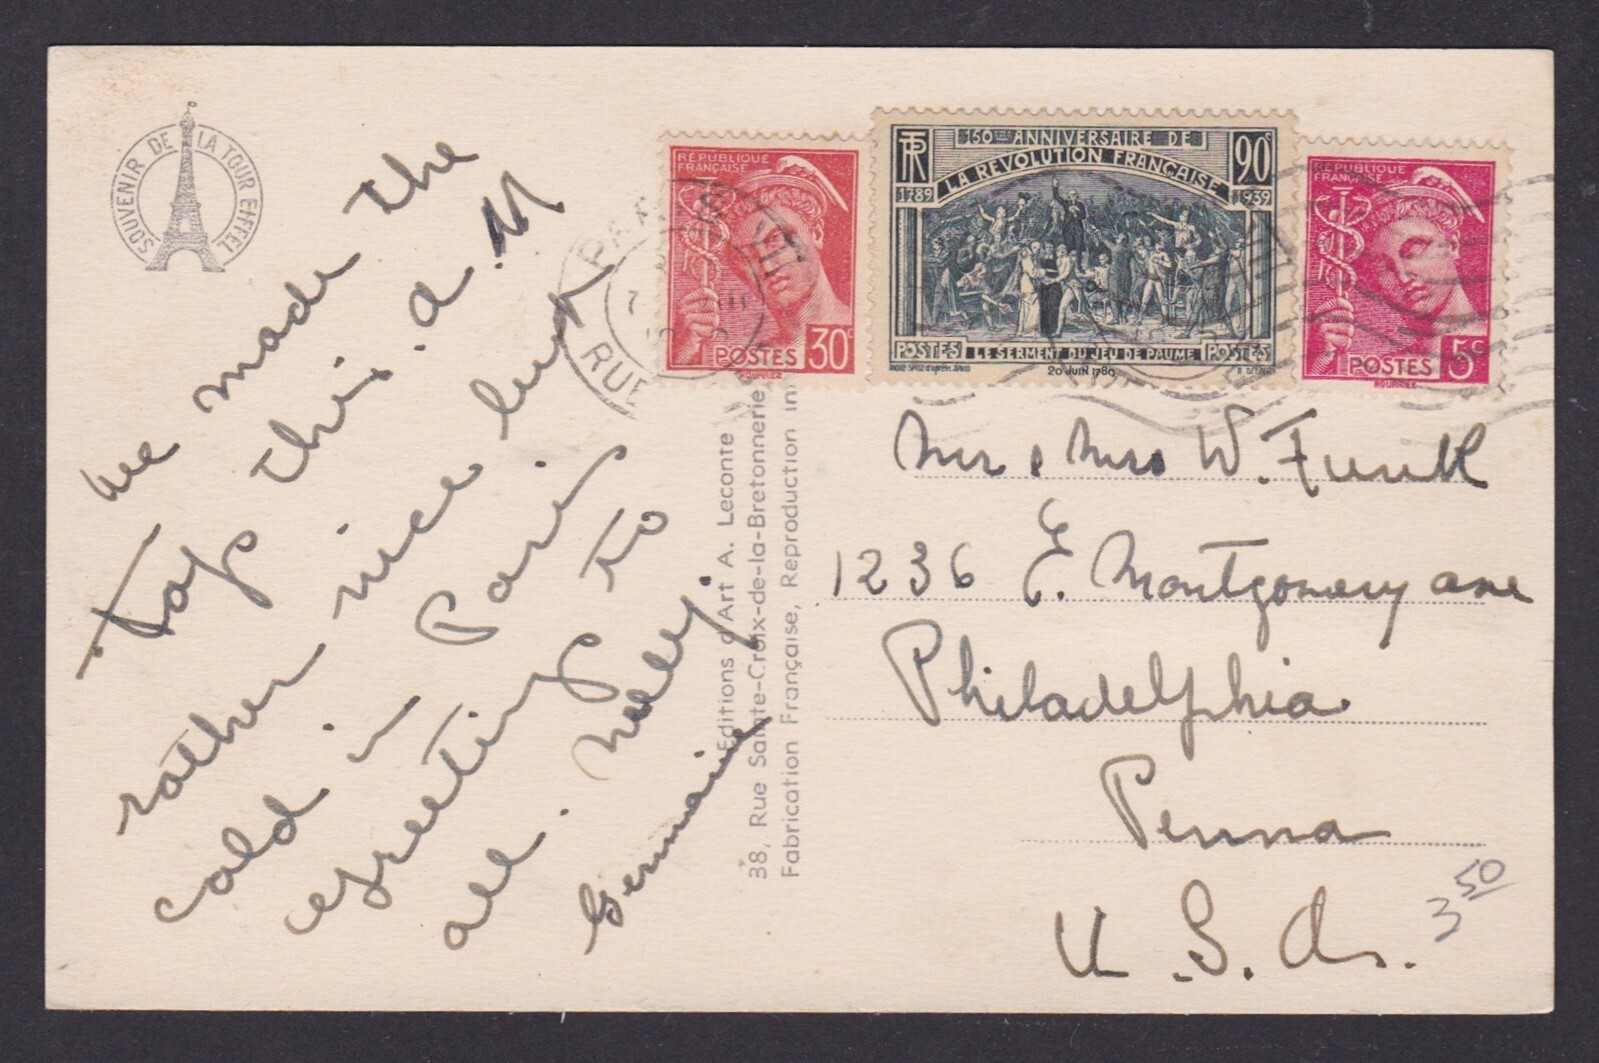 SOUVENIR DE LA TOUR EIFFEL
we made the
top this a.M
rather nice but
cold in Paris
greetings to
all. Nelly.
Germaine
Editions d'Art A. Leconte
38, Rue Sainte-Croix-de-la-Bretonnerie
Fabrication Française, Reproduction in
RÉPUBLIQUE
FRANÇAISE
POSTES 30c
PARIS
RUE
150ME ANNIVERSAIRE DE
LA REVOLUTION FRANÇAISE
90c
1789 1939
POSTES LE SERMENT DU JEU DE PAUME POSTES
20 JUIN 1789
RÉPUBLIQUE
FRANÇAISE
POSTES 5c
Mr & Mrs W. Funk
1236 E. Montgomery ave
Philadelphia
Penna
U.S.A.
3 50